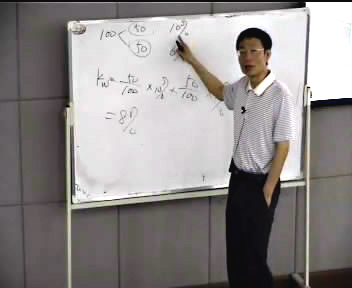 100 < 50 10%
50 6
Kw = 50/100 × 10% + 50/100 %
= 8%